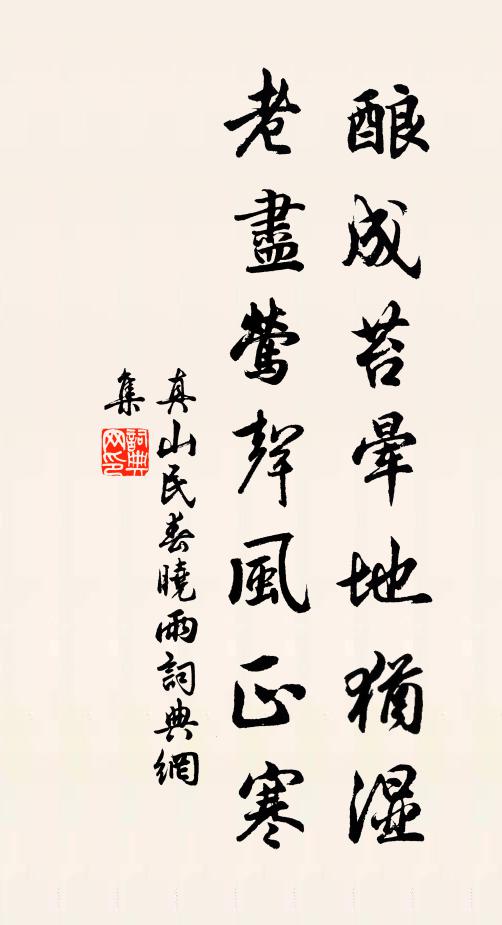 酿成苔暈地猶湿
老盡鶯聲風正寒
真山民春曉雨詞典網
集
詞典网印